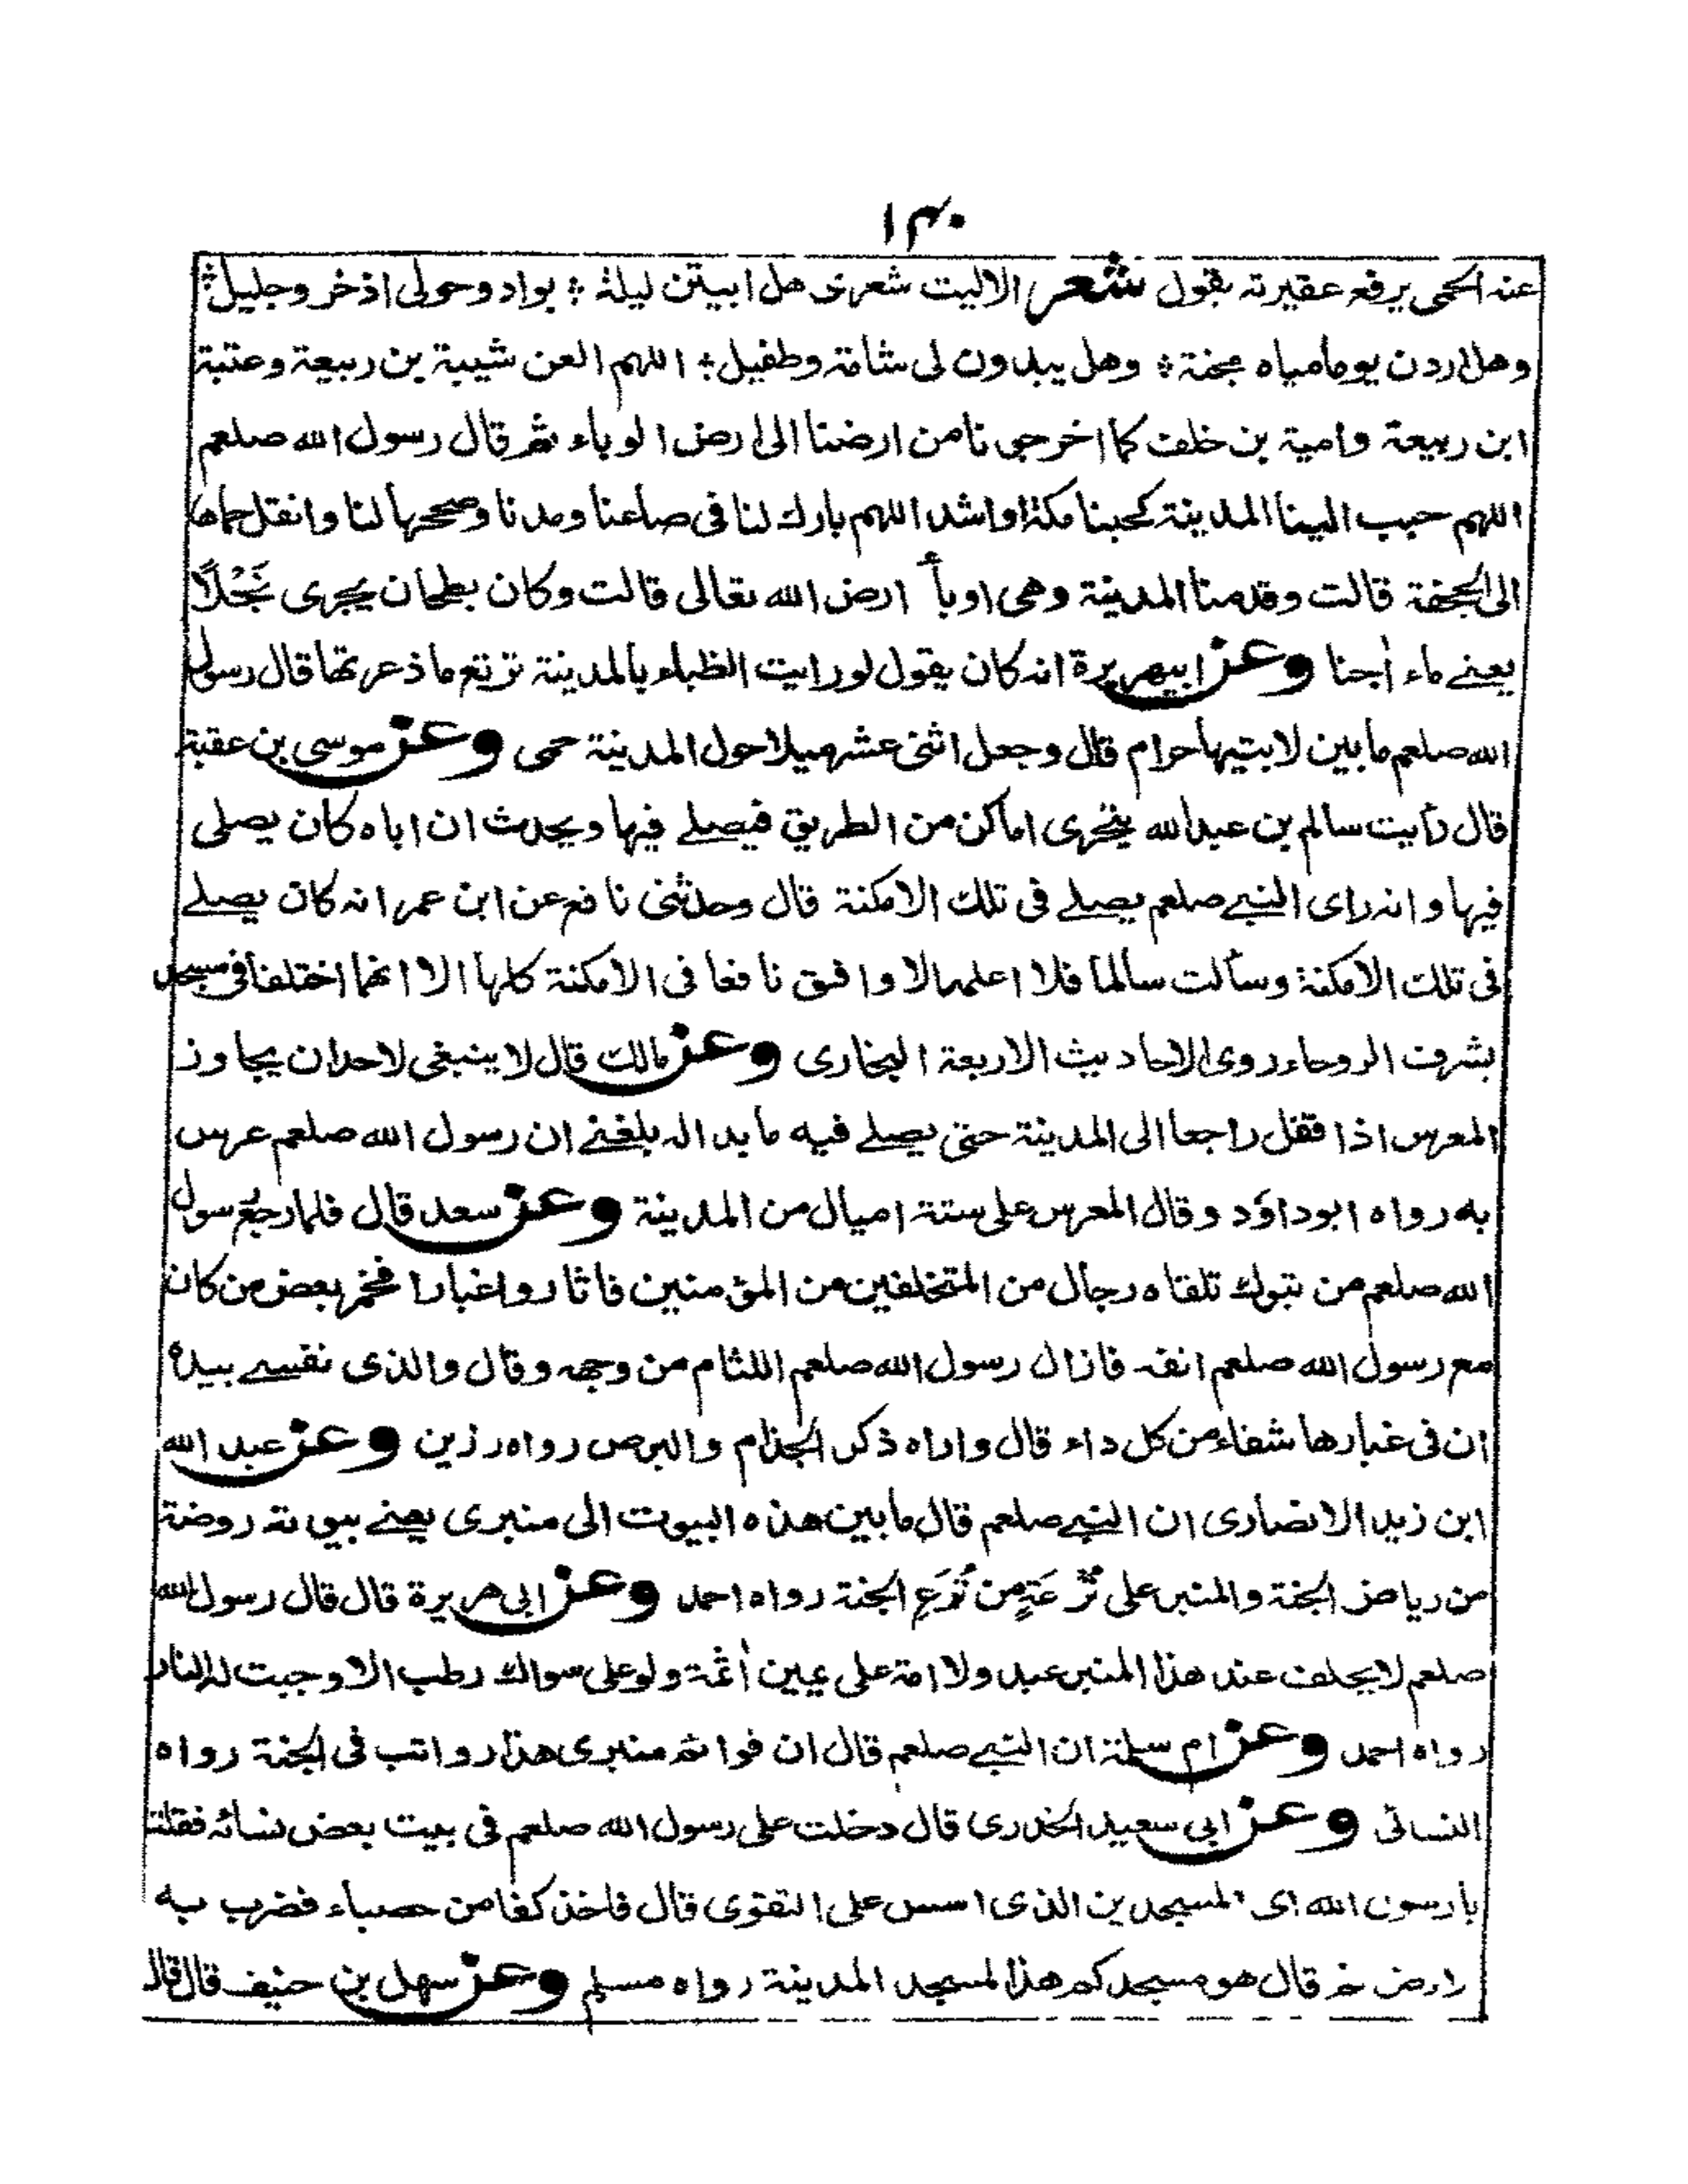 ١٤٠
عنه الحمى يرفع عقيرته يقول شعر الا ليت شعرى هل ابيتن ليلة ؛ بواد وحولى اذخر وجليل ؛
وهل اردن يوما مياه مجنة ؛ وهل يبدون لى شامة وطفيل ؛ اللهم العن شيبة بن ربيعة وعتبة
ابن ربيعة وامية بن خلف كما اخرجونا من ارضنا الى ارض الوباء ثم قال رسول الله صلعم
اللهم حبب الينا المدينة كحبنا مكة او اشد اللهم بارك لنا فى صاعنا ومدنا وصححها لنا وانقل حماها
الى الجحفة قالت وقدمنا المدينة وهى اوبأ ارض الله تعالى قالت وكان بطحان يجرى نَجْلًا
يعنے ماء اٰجنا وعن ابيهريرة انه كان يقول لو رايت الظباء بالمدينة ترتع ما ذعرتها قال رسول
الله صلعم ما بين لابتيها حرام قال وجعل اثنى عشر ميلا حول المدينة حمى وعن موسى بن عقبة
قال رأيت سالم بن عبد الله يتحرى اماكن من الطريق فيصلے فيها ويحدث ان اباه كان يصلى
فيها وانه راى النبے صلعم يصلے فى تلك الامكنة قال وحدثنى نافع عن ابن عمر انه كان يصلے
فى تلك الامكنة وسألت سالما فلا اعلمه الا وافق نافعا فى الامكنة كلها الا انهما اختلفا فى مسجد
بشرف الروحاء روى الاحاديث الاربعة البخارى وعن مالك قال لا ينبغى لاحد ان يجاوز
المعرس اذا قفل راجعا الى المدينة حتى يصلے فيه ما بدا له بلغنے ان رسول الله صلعم عرس
به رواه ابوداؤد وقال المعرس على ستة اميال من المدينة وعن سعد قال فلما رجع رسول
الله صلعم من تبوك تلقاه رجال من المتخلفين من المؤمنين فاثاروا غبارا فخمر بعض من كان
مع رسول الله صلعم انفه فازال رسول الله صلعم اللثام من وجهه وقال والذى نفسے بيده
ان فى غبارها شفاء من كل داء قال واراه ذكر الجذام والبرص رواه رزين وعن عبد الله
ابن زيد الانصارى ان النبے صلعم قال ما بين هذه البيوت الى منبرى يعنے بيوته روضة
من رياض الجنة والمنبر على تُرْعَةٍ من تُرَعِ الجنة رواه احمد وعن ابى هريرة قال قال رسول الله
صلعم لا يحلف عند هذا المنبر عبد ولا امة على يمين اٰثمة ولو على سواك رطب الا وجبت له النار
رواه احمد وعن ام سلمة ان النبے صلعم قال ان قوائم منبرى هذا رواتب فى الجنة رواه
النسائى وعن ابى سعيد الخدرى قال دخلت على رسول الله صلعم فى بيت بعض نسائه فقلت
يا رسول الله اى المسجدين الذى اسس على التقوى قال فاخذ كفا من حصباء فضرب به
الارض ثم قال هو مسجدكم هذا لمسجد المدينة رواه مسلم وعن سهل بن حنيف قال قال